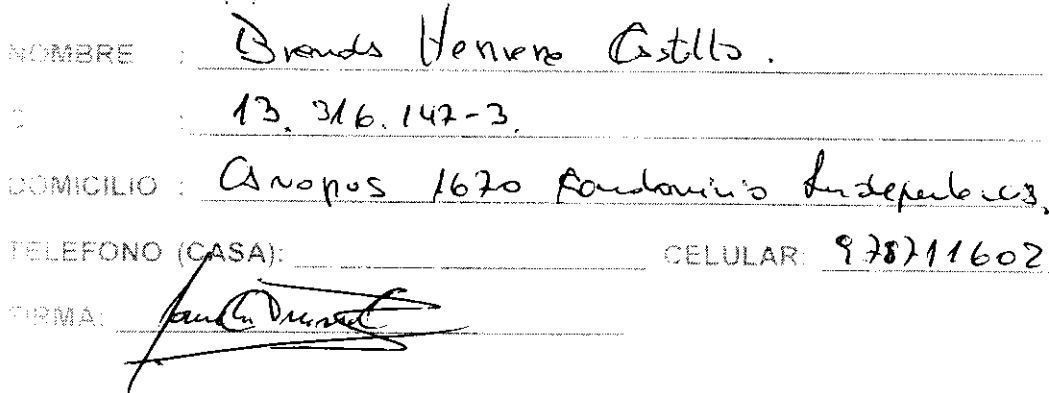 NOMBRE : Brenda Herrera Castillo.
: 13.316.147-3.
DOMICILIO : Canopus 1670 Condominio Independencia.
TELEFONO (CASA): CELULAR: 978711602
FIRMA: